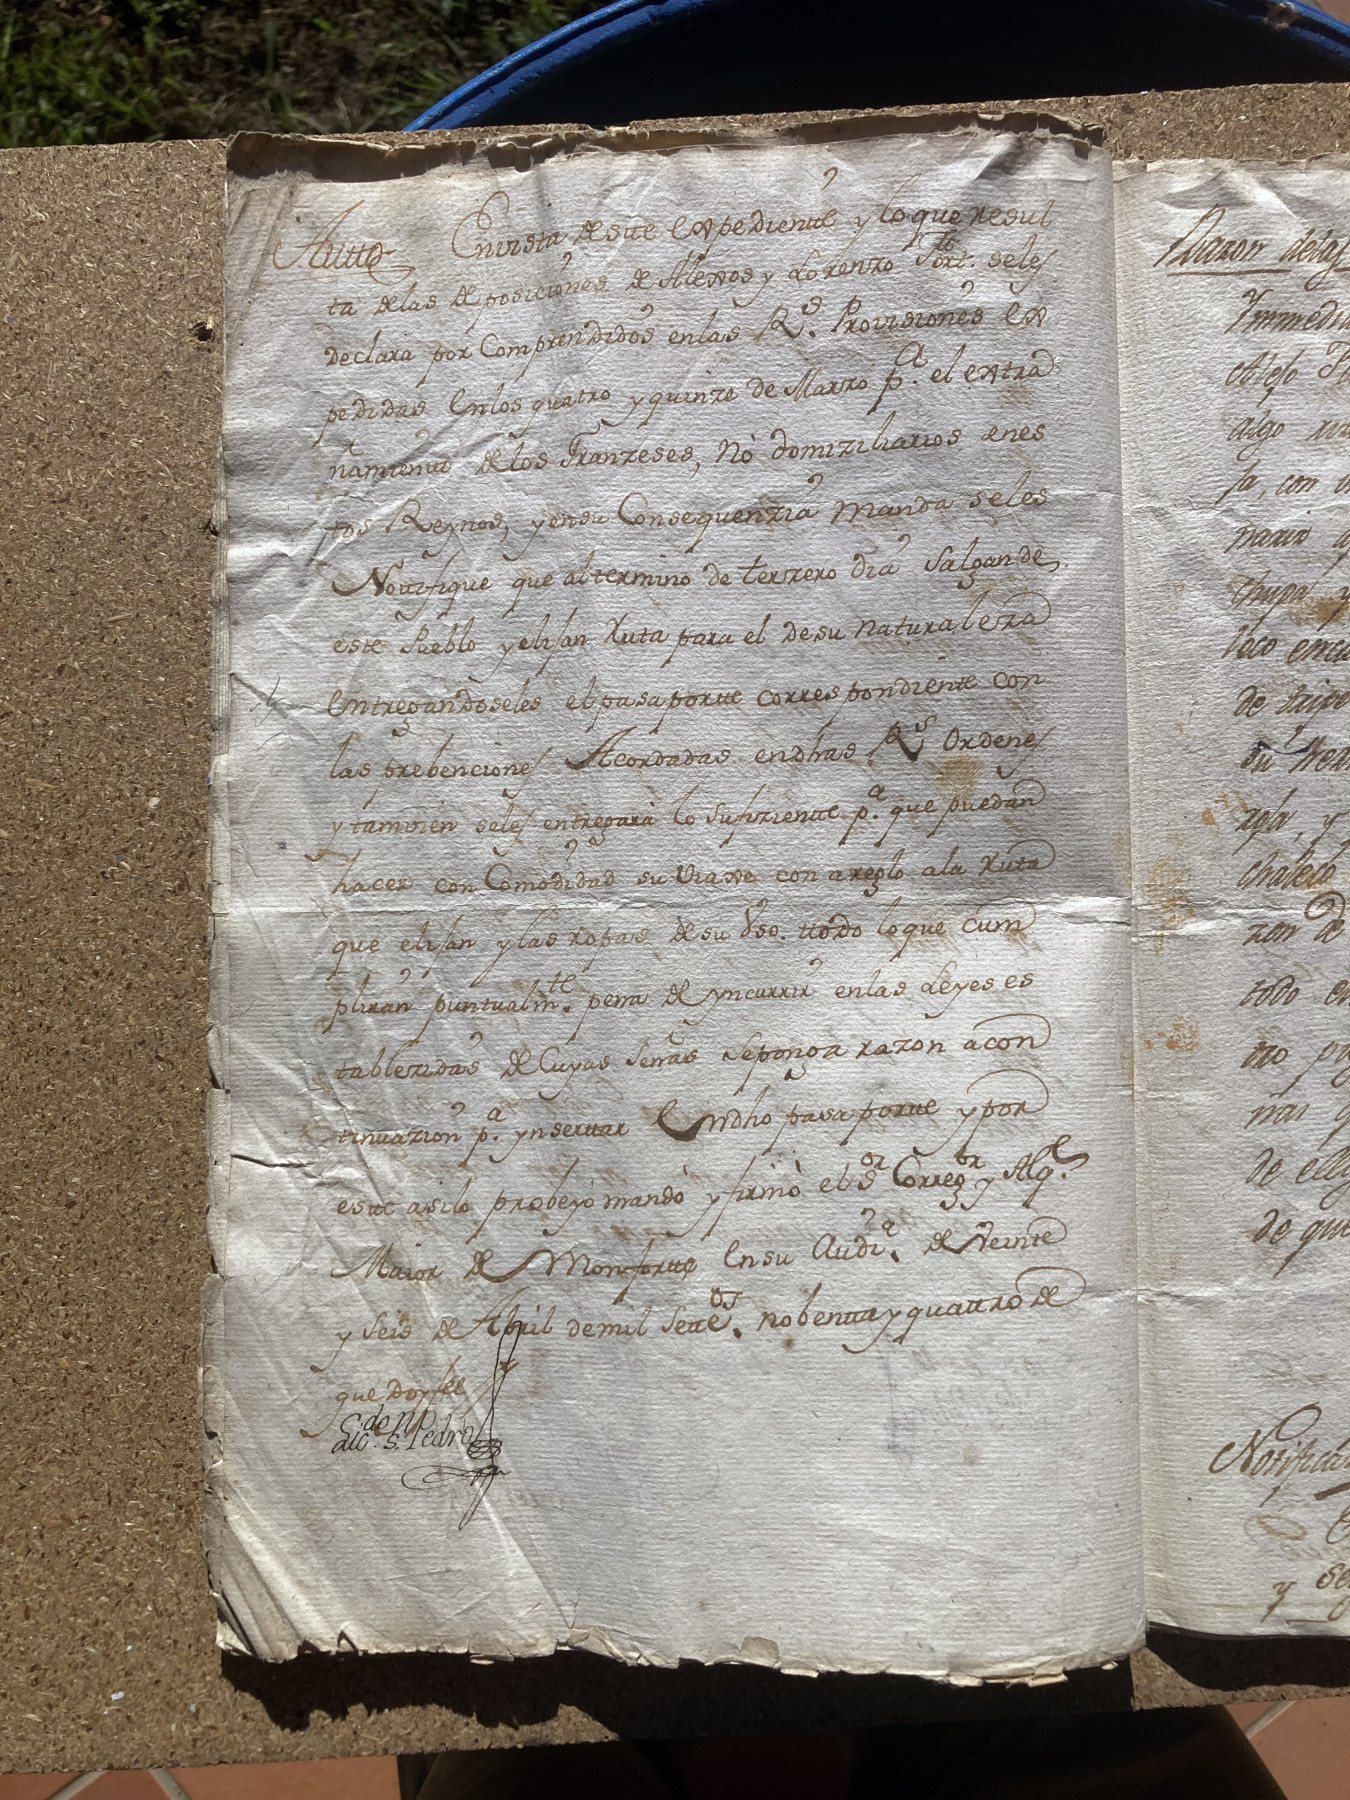 Autto En vista de este expediente y lo que resul
ta de las deposiciones de Alexos y Lorenzo Fort. seles
declara por Comprendidos en las Rs. Provisiones Ex
pedidas En los quatro y quinze de Marzo pa. el extra
ñamiento de los Franzeses, Nò domiziliarios enes
tos Reynos, y en su Consequenzia manda seles
Notifique que al termino de terzero dia salgan de
este Pueblo y elijan Ruta para el de su naturaleza
Entregandoseles el pasaporte correspondiente con
las prebenciones Acordadas en dhas Rs Ordenes
y tambien seles entregarà lo sufiziente pa. que puedan
hacer con Comodidad su Viaxe con areglo a la Ruta
que elijan y las ropas de su Vso. ttodo lo que cum
pliran puntualmte. pena de yncurrir en las Leyes es
tablezidas de Cuyas señas se ponga razon a con
tinuazion pa. ynserttar En dho pasaportte y por
este asi lo probeyò mandò y firmò el Sor Corregor y Alqe.
Maior de Monfortte En su Audia. de Veinte
y seis de Abril de mil settetos. nobentta y quattro de
que Doy fee
Licdo. S. Pedro
Razon de las
Immedia
Alejo
algo
ta, con
nario
chupa y
leco enca
de tripe
su
rgla, y
chaleco
zon de
todo en
no
nas q
de ellas
de que
Notifican
y se